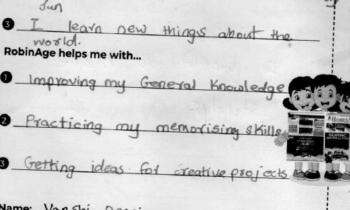 fun
3 I learn new things about the
world.
RobinAge helps me with...
1 Improving my General Knowledge
2 Practicing my memorising skills
3 Getting ideas for creative projects
Name: